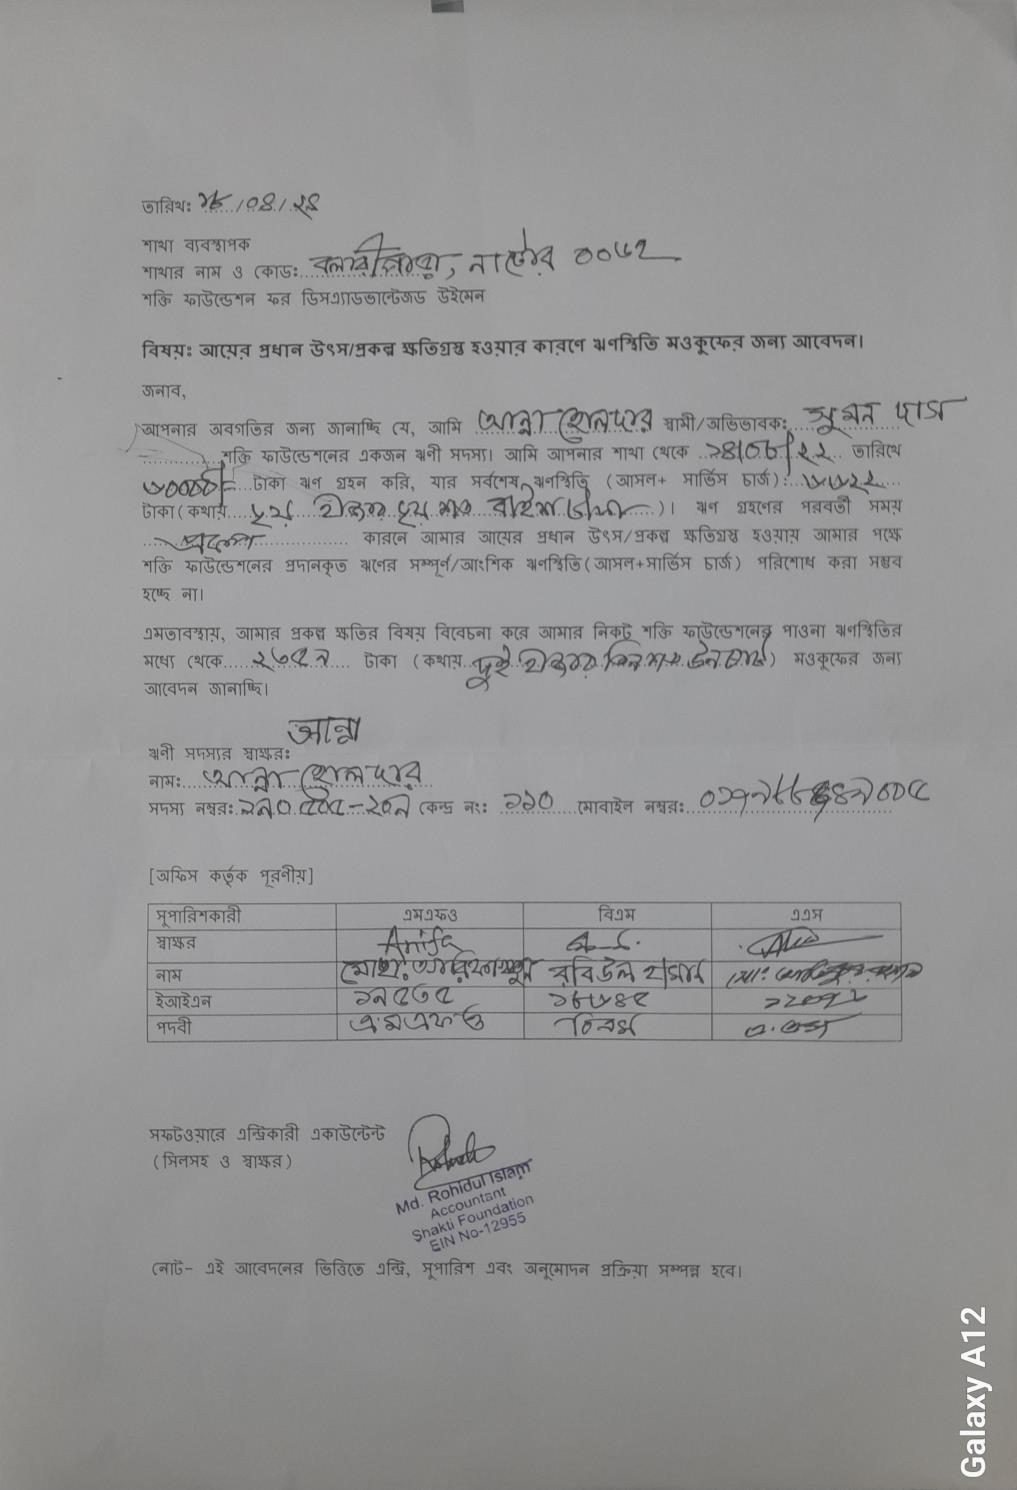 তারিখঃ ১৮/০৪/২৪
শাখা ব্যবস্থাপক
শাখার নাম ও কোডঃ নাটোর ০০৬২
শক্তি ফাউন্ডেশন ফর ডিসএ্যাডভান্টেজড উইমেন
বিষয়ঃ আয়ের প্রধান উৎস/প্রকল্প ক্ষতিগ্রস্থ হওয়ার কারণে ঋণস্থিতি মওকুফের জন্য আবেদন।
জনাব,
আপনার অবগতির জন্য জানাচ্ছি যে, আমি আন্না হোলদার স্বামী/অভিভাবকঃ সুমন দাস
শক্তি ফাউন্ডেশনের একজন ঋনী সদস্য। আমি আপনার শাখা থেকে ১৪/০৮/২২ তারিখে
৩০০০০/= টাকা ঋণ গ্রহন করি, যার সর্বশেষ ঋণস্থিতি (আসল+ সার্ভিস চার্জ): ৬৬২২
টাকা(কথায় ছয় হাজার ছয় শত বাইশ টাকা)। ঋণ গ্রহণের পরবর্তী সময়
কারনে আমার আয়ের প্রধান উৎস/প্রকল্প ক্ষতিগ্রস্থ হওয়ায় আমার পক্ষে
শক্তি ফাউন্ডেশনের প্রদানকৃত ঋণের সম্পূর্ণ/আংশিক ঋণস্থিতি(আসল+সার্ভিস চার্জ) পরিশোধ করা সম্ভব
হচ্ছে না।
এমতাবস্থায়, আমার প্রকল্প ক্ষতির বিষয় বিবেচনা করে আমার নিকট শক্তি ফাউন্ডেশনের পাওনা ঋণস্থিতির
মধ্যে থেকে টাকা (কথায় দুই হাজার তিন শত) মওকুফের জন্য
আবেদন জানাচ্ছি।
আন্না
ঋনী সদস্যর স্বাক্ষরঃ
নামঃ আন্না হোলদার
সদস্য নম্বরঃ কেন্দ্র নং: ১১০ মোবাইল নম্বরঃ
[অফিস কর্তৃক পূরণীয়]
সুপারিশকারী এমএফও বিএম এএস
স্বাক্ষর Anifa
নাম রবিউল হাসান
ইআইএন ১৯৫৩৫ ১৮৬৪৫
পদবী এমএফও বিএম এ.এস
সফটওয়ারে এন্ট্রিকারী একাউন্টেন্ট
(সিলসহ ও স্বাক্ষর)
Md. Rohidul Islam
Accountant
Shakti Foundation
EIN No-12955
নোট- এই আবেদনের ভিত্তিতে এন্ট্রি, সুপারিশ এবং অনুমোদন প্রক্রিয়া সম্পন্ন হবে।
Galaxy A12